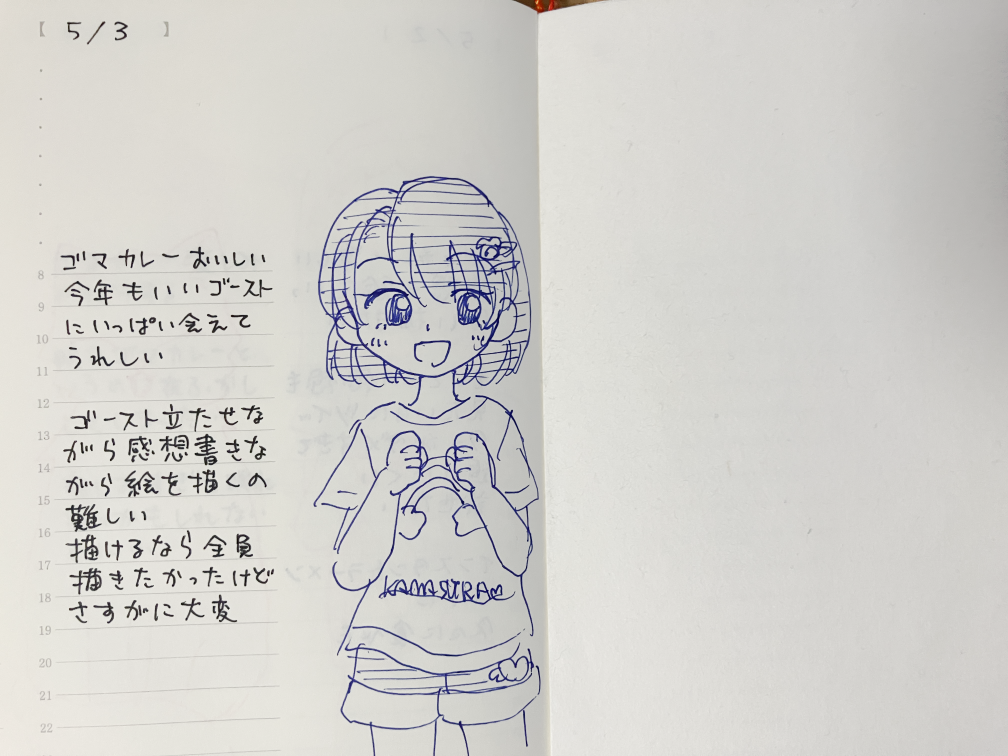 【 5/3 】
ゴマカレーおいしい
今年もいいゴースト
にいっぱい会えて
うれしい
ゴースト立たせな
がら感想書きな
がら絵を描くの
難しい
描けるなら全員
描きたかったけど
さすがに大変
8
9
10
11
12
13
14
15
16
17
18
19
20
21
22